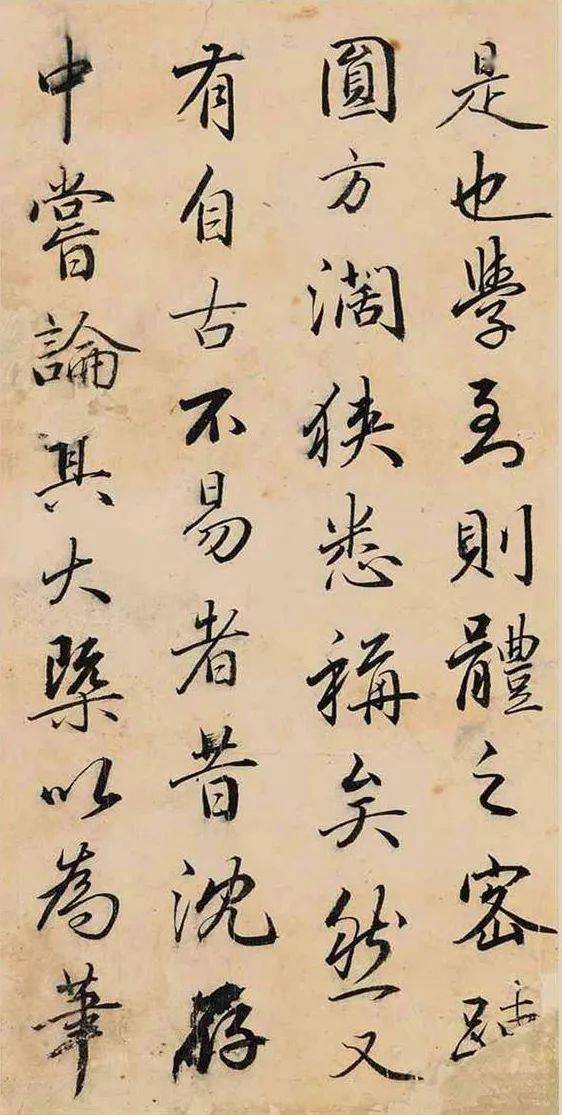 是也學到則體之密疏
圓方濶狹悉稱矣然又
有自古不易者昔沈存
中嘗論其大槩以為筆